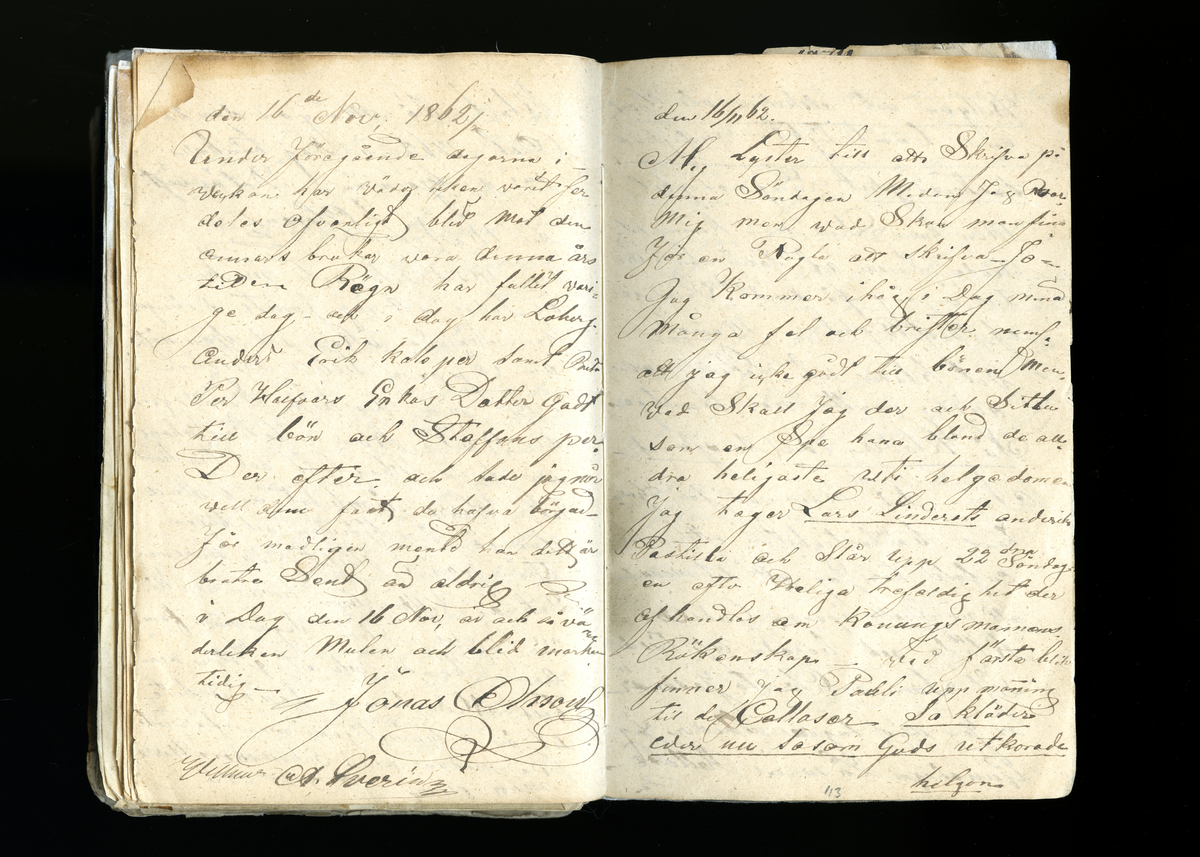 den 16de Nov, 1862/
Under föregående dagarna i
veckan har väderleken varit sär
deles ofvanligt blid mot den
annars brukar vara denna års
tiden Rägn har fallet vari-
ge dag - och i dag har Loberg.
Anders Erik kols per samt
Per Halfvars Enkas Dotter Gådt
till bön och Staffans per
Der efter och
vell
för
bättre Send än aldrig
i Dag den 16 Nov, är och så vä
derleken Mulen och blid mörken
tidig -
Jönas Olsson
A. Sverin
den 16/11 62.
Mig Lyster till att Skrifva på
denna Söndagen Medan Jag Roar
Mig men vad Skall man finna
för en Regla att skrifva - Jo -
Jag Kommer ihåg i Dag mina
många fel och brister neml.
att jag icke gådt till bönen Men
vad Skall Jag der och Sitta
som en Spe hana bland de all-
dra heligaste uti helgedomen
Jag tager Lars Linderots andeliga
Postilla och Slår upp 22dra Söndag
en eftr Heliga trefaldighet der
afhandlas om Konungsmannens
Räkenskap - ved första bladet
finner Jag Pauli uppmaning
til de Gallaser Så kläder
eder nu så som Guds utkorade
helgon
43